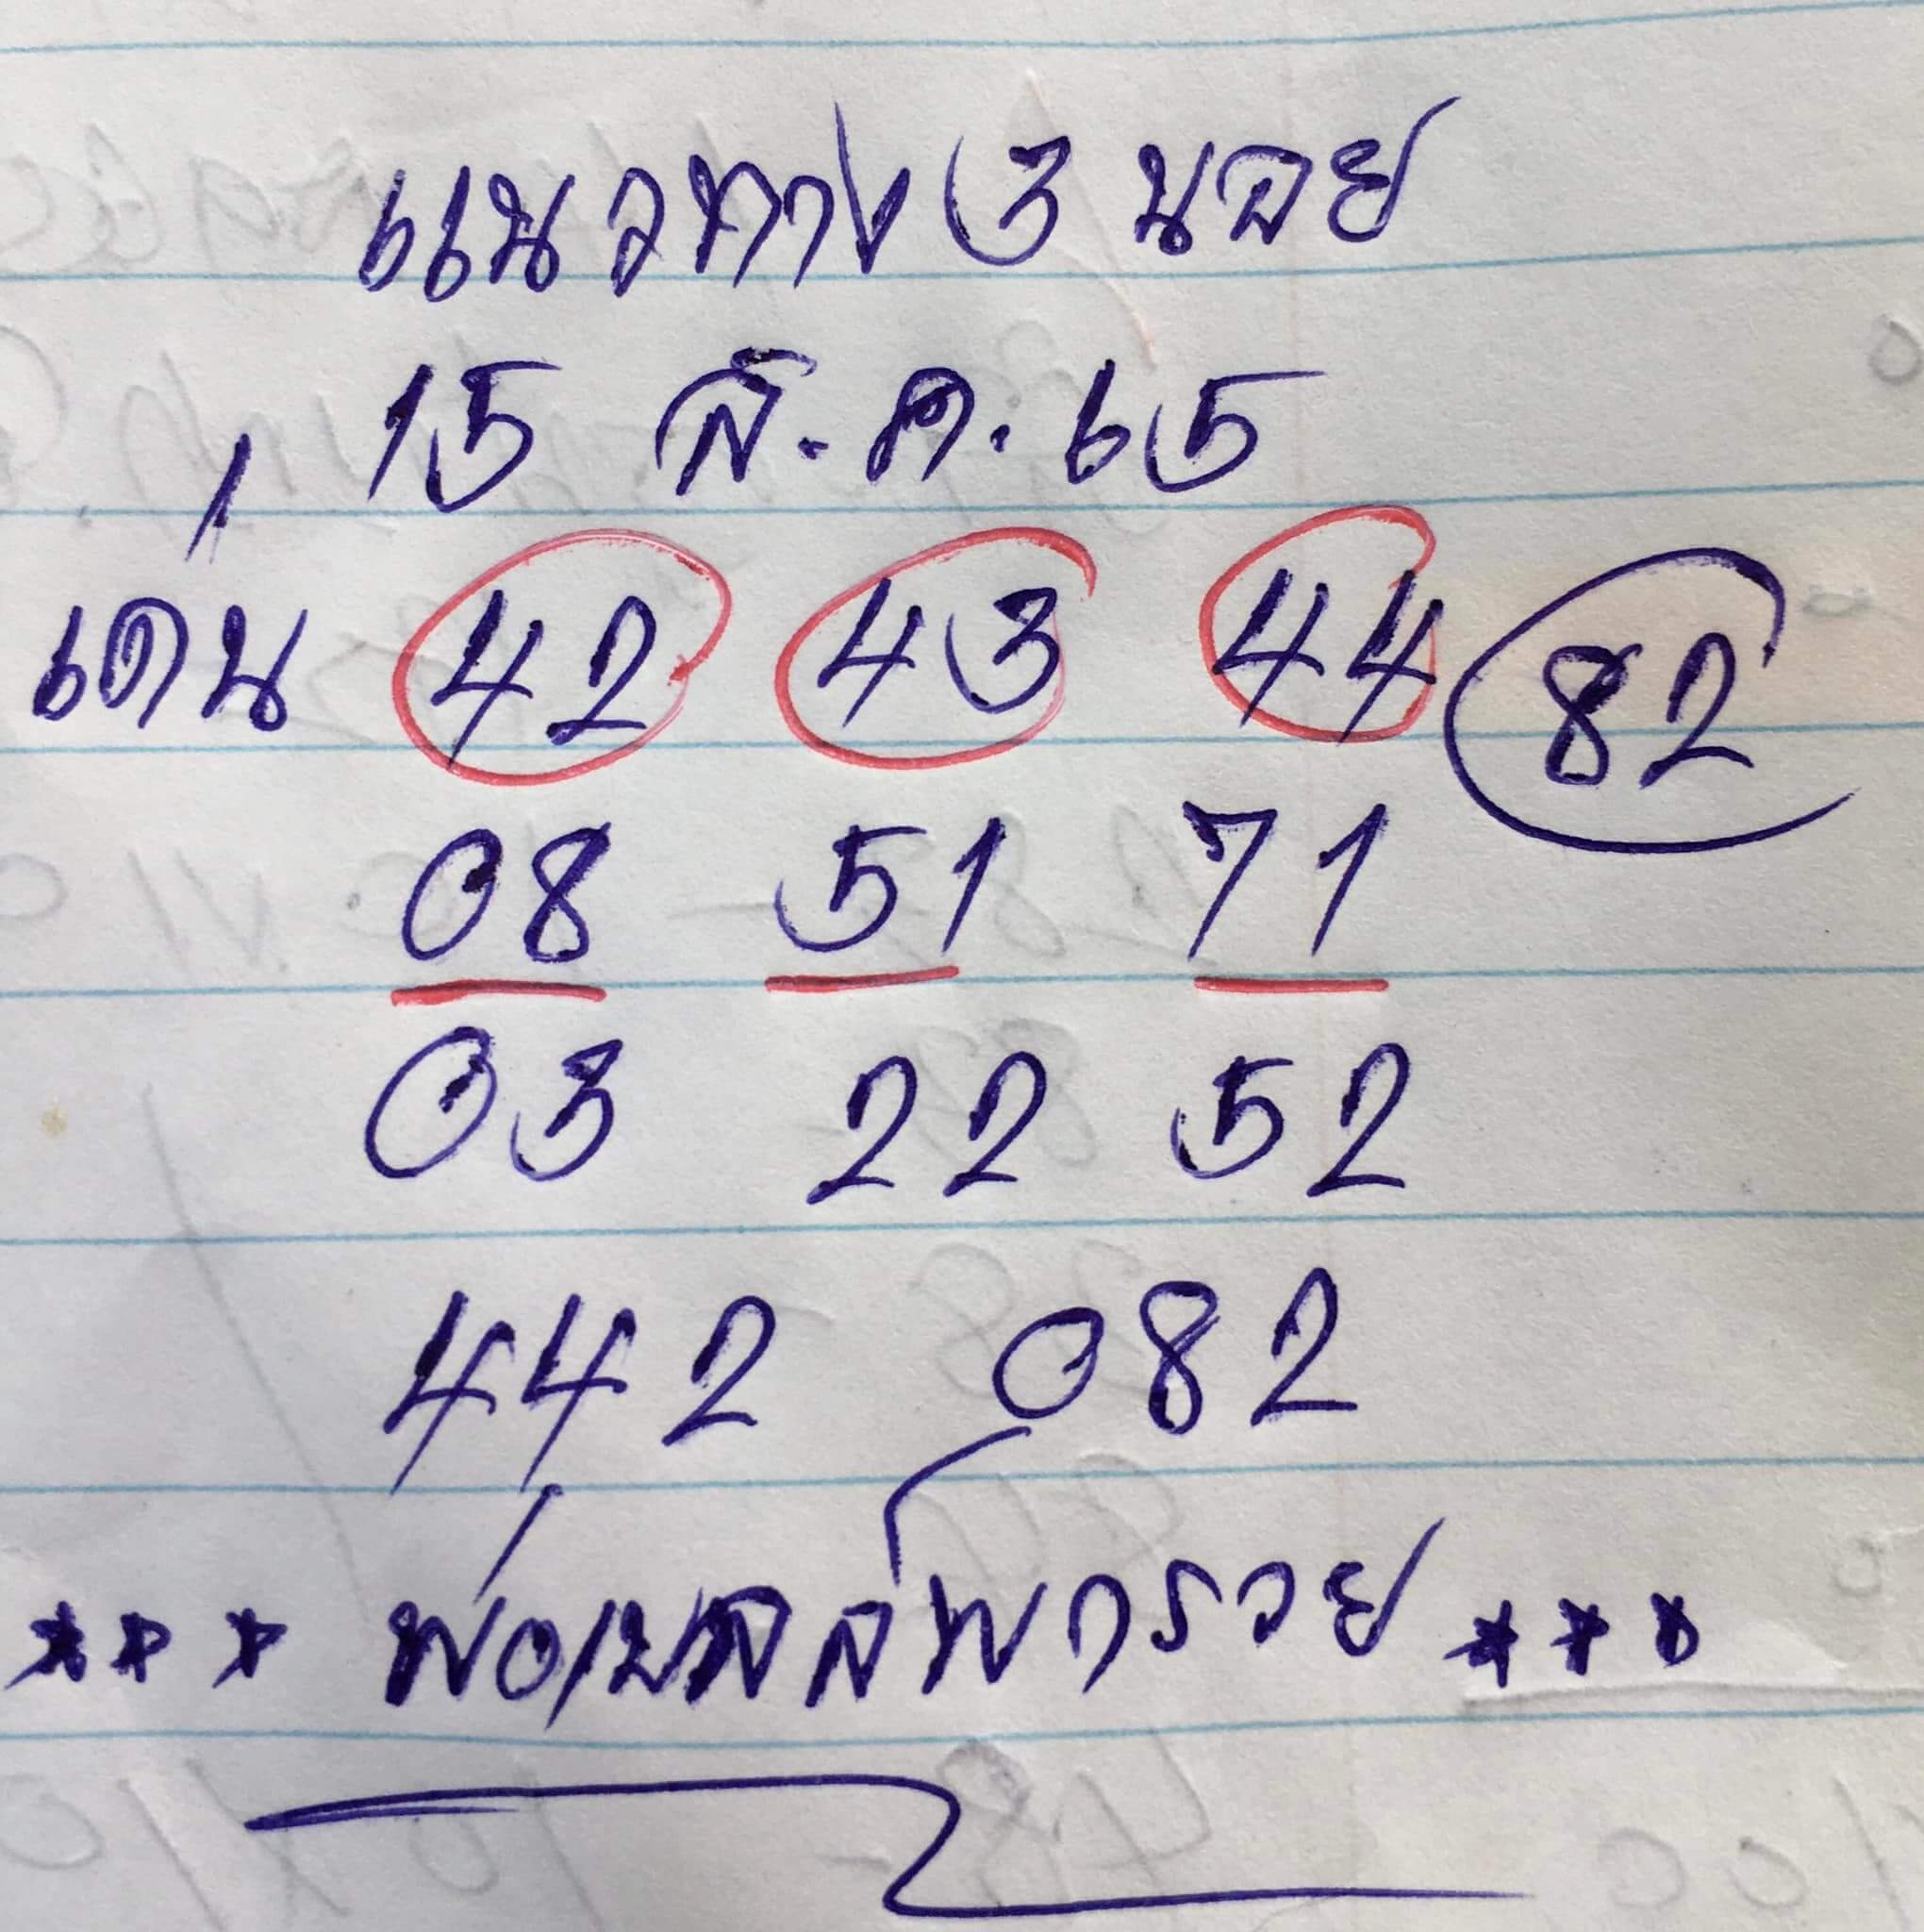 แนวทาง 3 นอย
15 ส.ค. 65
เด่น 42 43 44 82
08 51 71
03 22 52
442 082
*** พ่อเบลล์พารวย ***